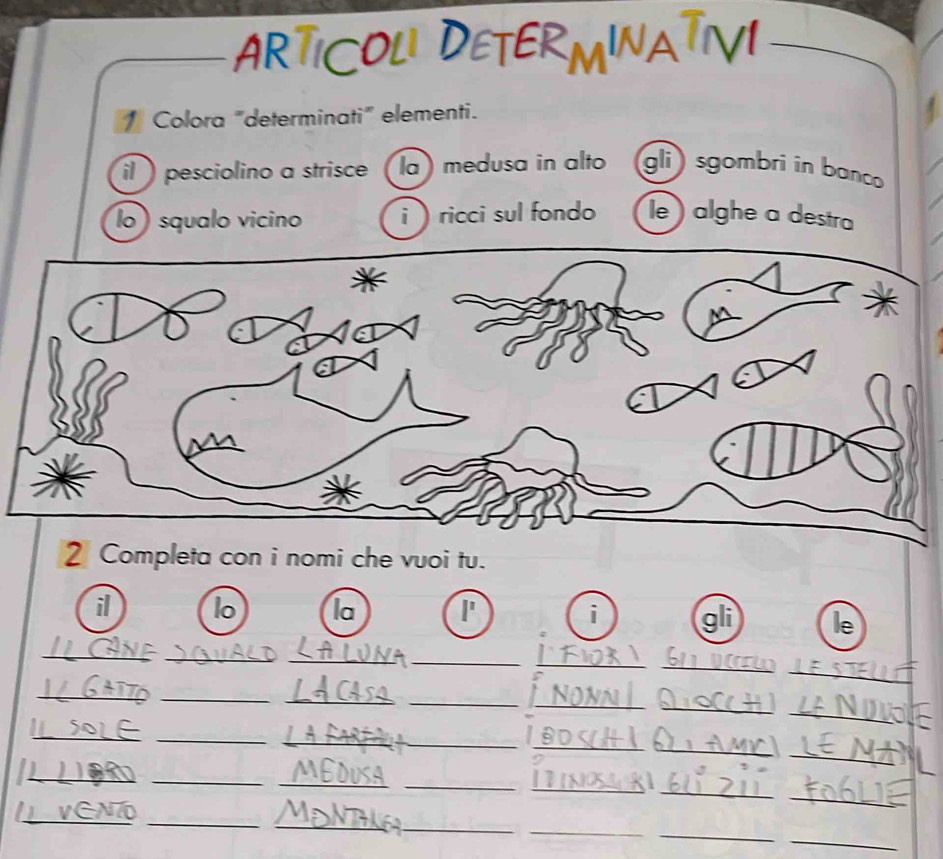 ARTICOLI DETERMINATIVI
1 Colora "determinati" elementi.
il pesciolino a strisce la medusa in alto gli sgombri in banco
lo squalo vicino i ricci sul fondo le alghe a destra
2 Completa con i nomi che vuoi tu.
il lo la l' i gli le
IL CANE SQUALO LA LUNA I FIORI GLI LE STELLE
IL GATTO LA CASA I NONNI OCCHI LE NUVOLE
IL SOLE LA I BOSCHI AMICI LE MANI
IL LIBRO MEDUSA GLI ZII FOGLIE
IL VENTO